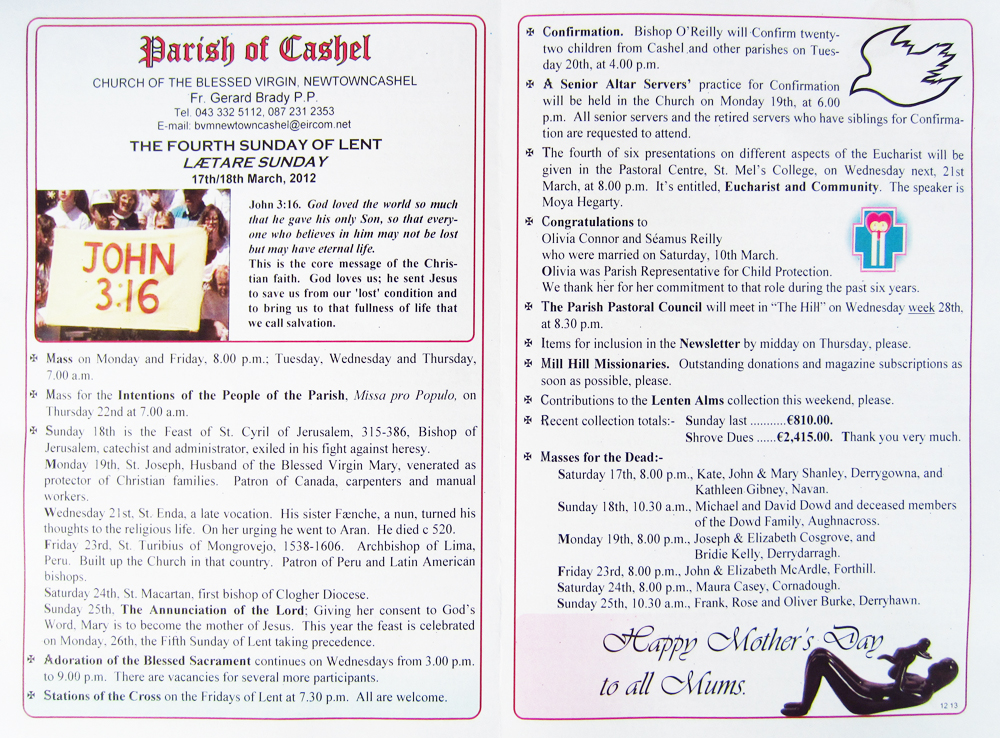 Parish of Cashel
CHURCH OF THE BLESSED VIRGIN, NEWTOWNCASHEL
Fr. Gerard Brady P.P.
Tel. 043 332 5112, 087 231 2353
E-mail: bvmnewtowncashel@eircom.net
THE FOURTH SUNDAY OF LENT
LÆTARE SUNDAY
17th/18th March, 2012
JOHN
3:16
John 3:16. God loved the world so much
that he gave his only Son, so that every-
one who believes in him may not be lost
but may have eternal life.
This is the core message of the Chris-
tian faith. God loves us; he sent Jesus
to save us from our 'lost' condition and
to bring us to that fullness of life that
we call salvation.
✠ Mass on Monday and Friday, 8.00 p.m.; Tuesday, Wednesday and Thursday,
7.00 a.m.
✠ Mass for the Intentions of the People of the Parish, Missa pro Populo, on
Thursday 22nd at 7.00 a.m.
✠ Sunday 18th is the Feast of St. Cyril of Jerusalem, 315-386, Bishop of
Jerusalem, catechist and administrator, exiled in his fight against heresy.
Monday 19th, St. Joseph, Husband of the Blessed Virgin Mary, venerated as
protector of Christian families. Patron of Canada, carpenters and manual
workers.
Wednesday 21st, St. Enda, a late vocation. His sister Fænche, a nun, turned his
thoughts to the religious life. On her urging he went to Aran. He died c 520.
Friday 23rd, St. Turibius of Mongrovejo, 1538-1606. Archbishop of Lima,
Peru. Built up the Church in that country. Patron of Peru and Latin American
bishops.
Saturday 24th, St. Macartan, first bishop of Clogher Diocese.
Sunday 25th, The Annunciation of the Lord; Giving her consent to God's
Word, Mary is to become the mother of Jesus. This year the feast is celebrated
on Monday, 26th, the Fifth Sunday of Lent taking precedence.
✠ Adoration of the Blessed Sacrament continues on Wednesdays from 3.00 p.m.
to 9.00 p.m. There are vacancies for several more participants.
✠ Stations of the Cross on the Fridays of Lent at 7.30 p.m. All are welcome.
✠ Confirmation. Bishop O'Reilly will Confirm twenty-
two children from Cashel and other parishes on Tues-
day 20th, at 4.00 p.m.
✠ A Senior Altar Servers' practice for Confirmation
will be held in the Church on Monday 19th, at 6.00
p.m. All senior servers and the retired servers who have siblings for Confirma-
tion are requested to attend.
✠ The fourth of six presentations on different aspects of the Eucharist will be
given in the Pastoral Centre, St. Mel's College, on Wednesday next, 21st
March, at 8.00 p.m. It's entitled, Eucharist and Community. The speaker is
Moya Hegarty.
✠ Congratulations to
Olivia Connor and Séamus Reilly
who were married on Saturday, 10th March.
Olivia was Parish Representative for Child Protection.
We thank her for her commitment to that role during the past six years.
✠ The Parish Pastoral Council will meet in “The Hill” on Wednesday week 28th,
at 8.30 p.m.
✠ Items for inclusion in the Newsletter by midday on Thursday, please.
✠ Mill Hill Missionaries. Outstanding donations and magazine subscriptions as
soon as possible, please.
✠ Contributions to the Lenten Alms collection this weekend, please.
✠ Recent collection totals:- Sunday last ...........€810.00.
Shrove Dues ......€2,415.00. Thank you very much.
✠ Masses for the Dead:-
Saturday 17th, 8.00 p.m., Kate, John & Mary Shanley, Derrygowna, and
Kathleen Gibney, Navan.
Sunday 18th, 10.30 a.m., Michael and David Dowd and deceased members
of the Dowd Family, Aughnacross.
Monday 19th, 8.00 p.m., Joseph & Elizabeth Cosgrove, and
Bridie Kelly, Derrydarragh.
Friday 23rd, 8.00 p.m., John & Elizabeth McArdle, Forthill.
Saturday 24th, 8.00 p.m., Maura Casey, Cornadough.
Sunday 25th, 10.30 a.m., Frank, Rose and Oliver Burke, Derryhawn.
Happy Mother's Day
to all Mums.
12 13